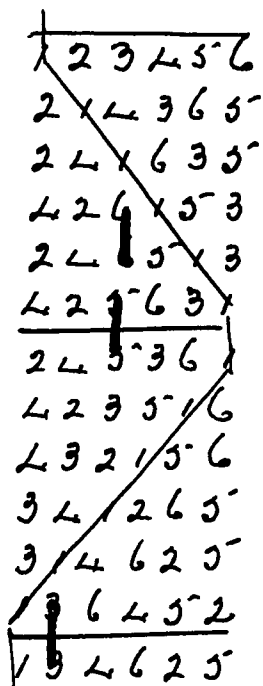 1 2 3 4 5 6
2 1 4 3 6 5
2 4 1 6 3 5
4 2 6 1 5 3
2 4 6 5 1 3
4 2 5 6 3 1
2 4 5 3 6 1
4 2 3 5 1 6
4 3 2 1 5 6
3 4 1 2 6 5
3 1 4 6 2 5
1 3 6 4 5 2
1 3 4 6 2 5